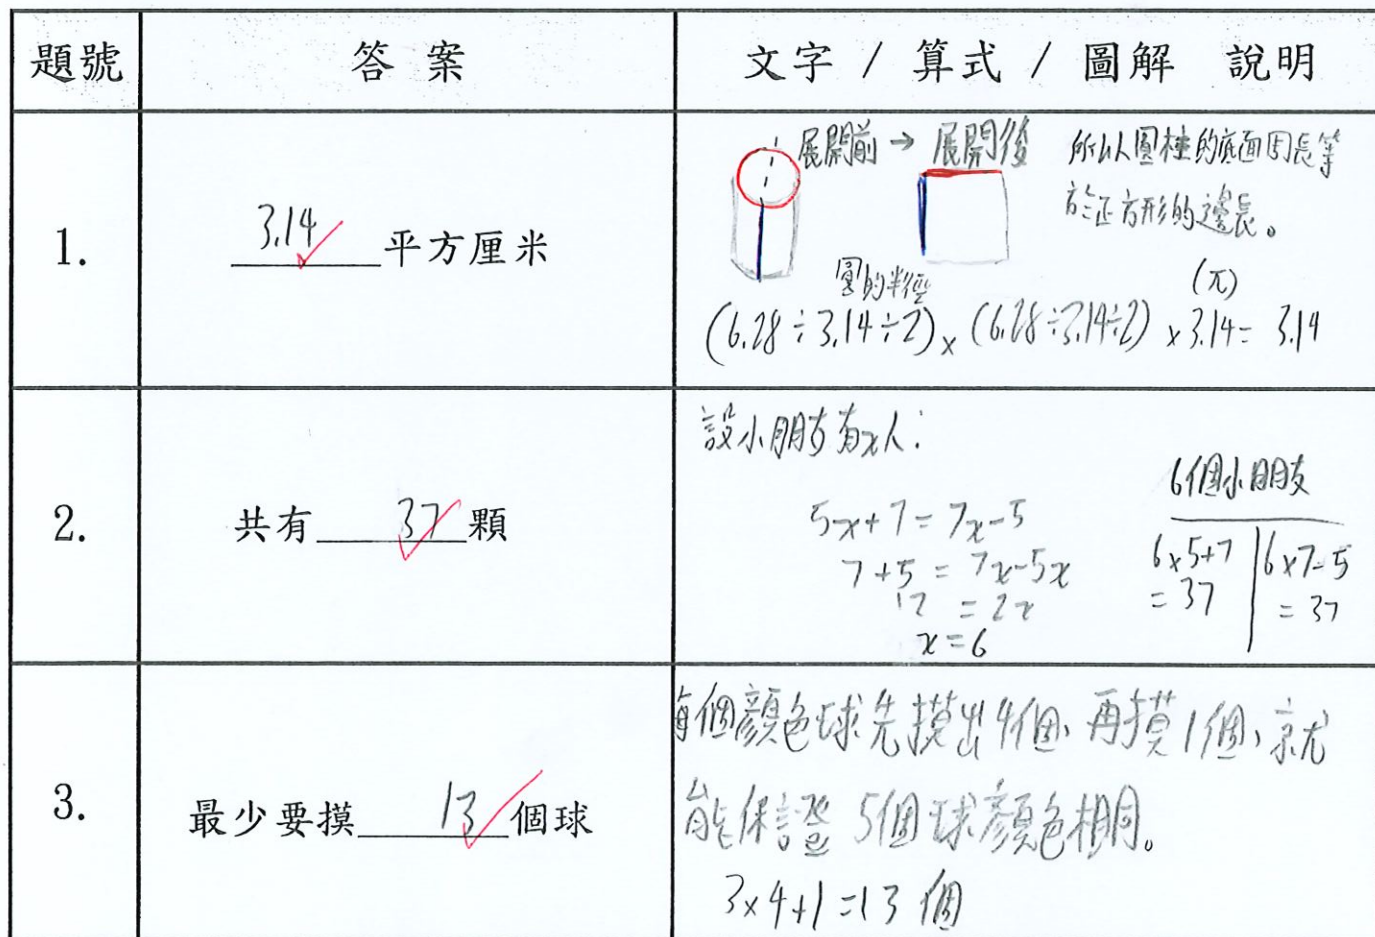 題號 答案 文字 / 算式 / 圖解 說明
1. 3.14 平方厘米
展開前 → 展開後 所以圓柱的底面周長等
於正方形的邊長。
圓的半徑 (π)
(6.28÷3.14÷2)×(6.28÷3.14÷2)×3.14= 3.14
2. 共有 37 顆
設小朋友有x人:
5x+7=7x-5
7+5 = 7x-5x
12 = 2x
x=6
6個小朋友
6×5+7 6×7-5
=37 =37
3. 最少要摸 13 個球
每個顏色球先摸出4個,再摸1個,就
能保證5個球顏色相同。
3×4+1=13個